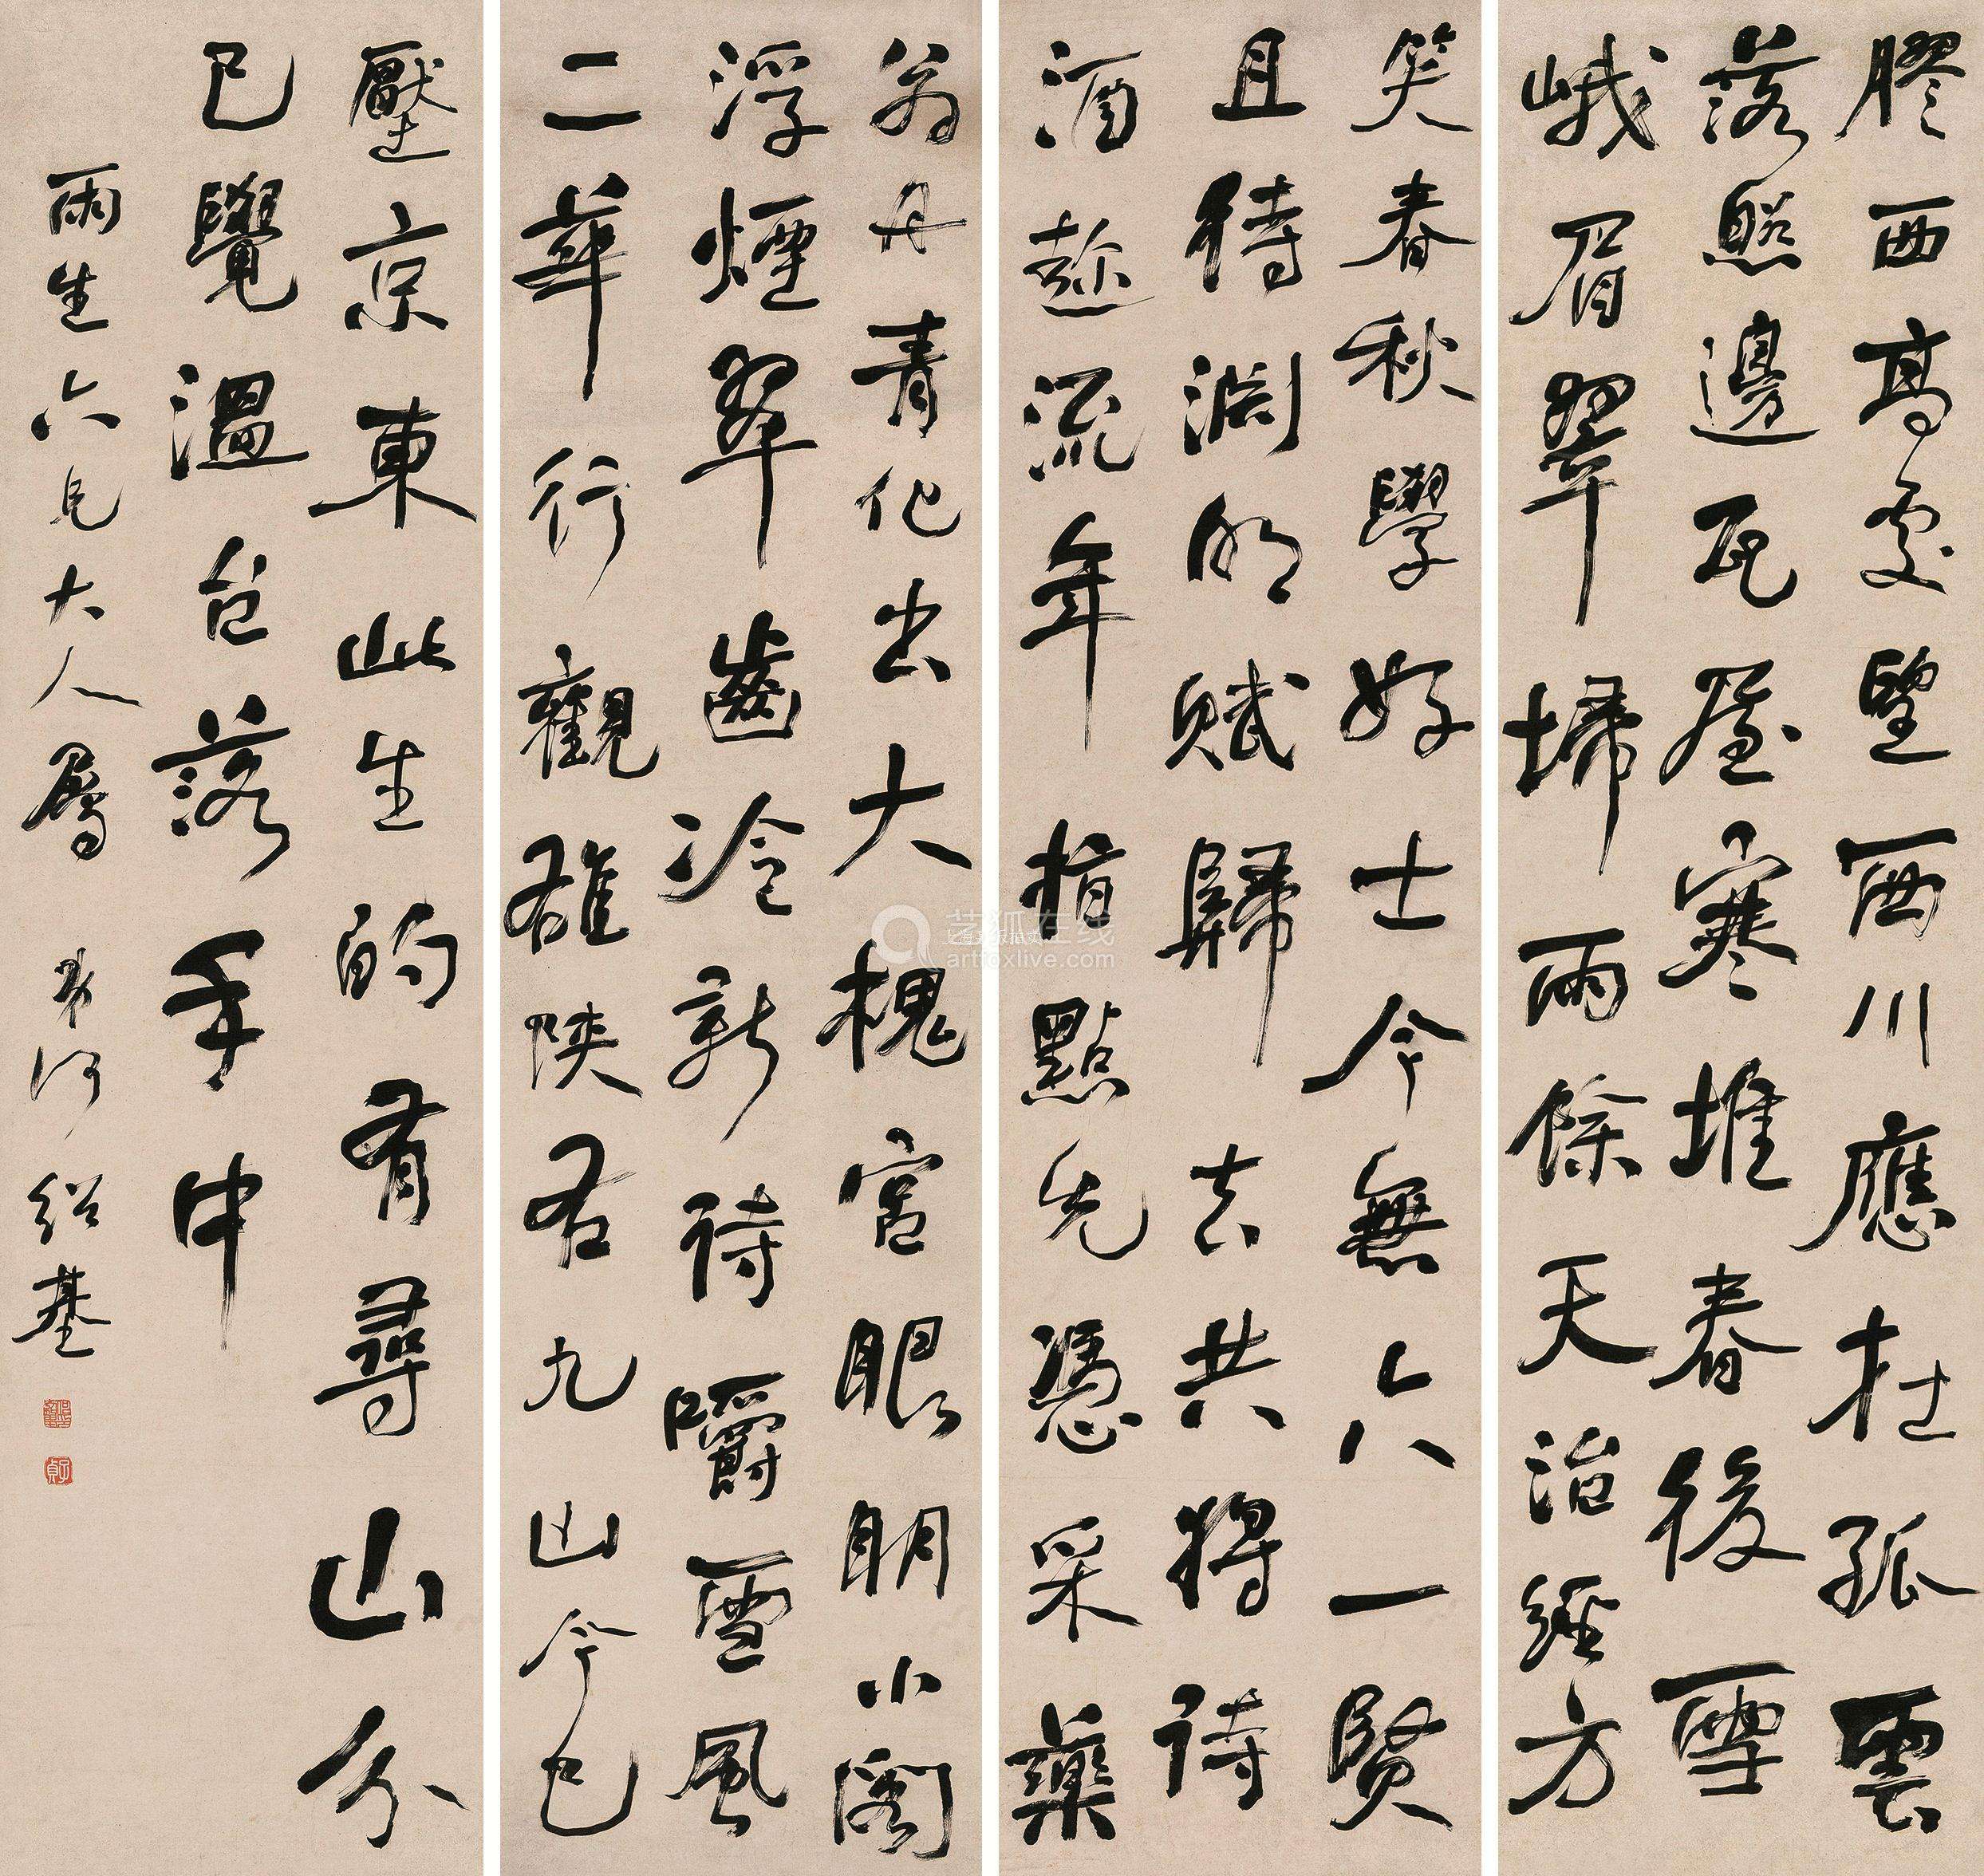 膠西高處望西川應在孤雲
落照邊瓦屋寒堆春後雪
峨眉翠埽雨餘天治經方
笑春秋學好士今無六一賢
且待淵明賦歸去共將詩
酒趂流年指點先憑采藥
翁丹青化出大槐宮眼明小閣
浮煙翠齒冷新詩嚼雪風
二華行觀雄陝右九山今已
壓京東此生的有尋山分
已覺溫台落手中
雨生六兄大人屬 弟何紹基
子貞
艺狐在线
artfoxlive.com